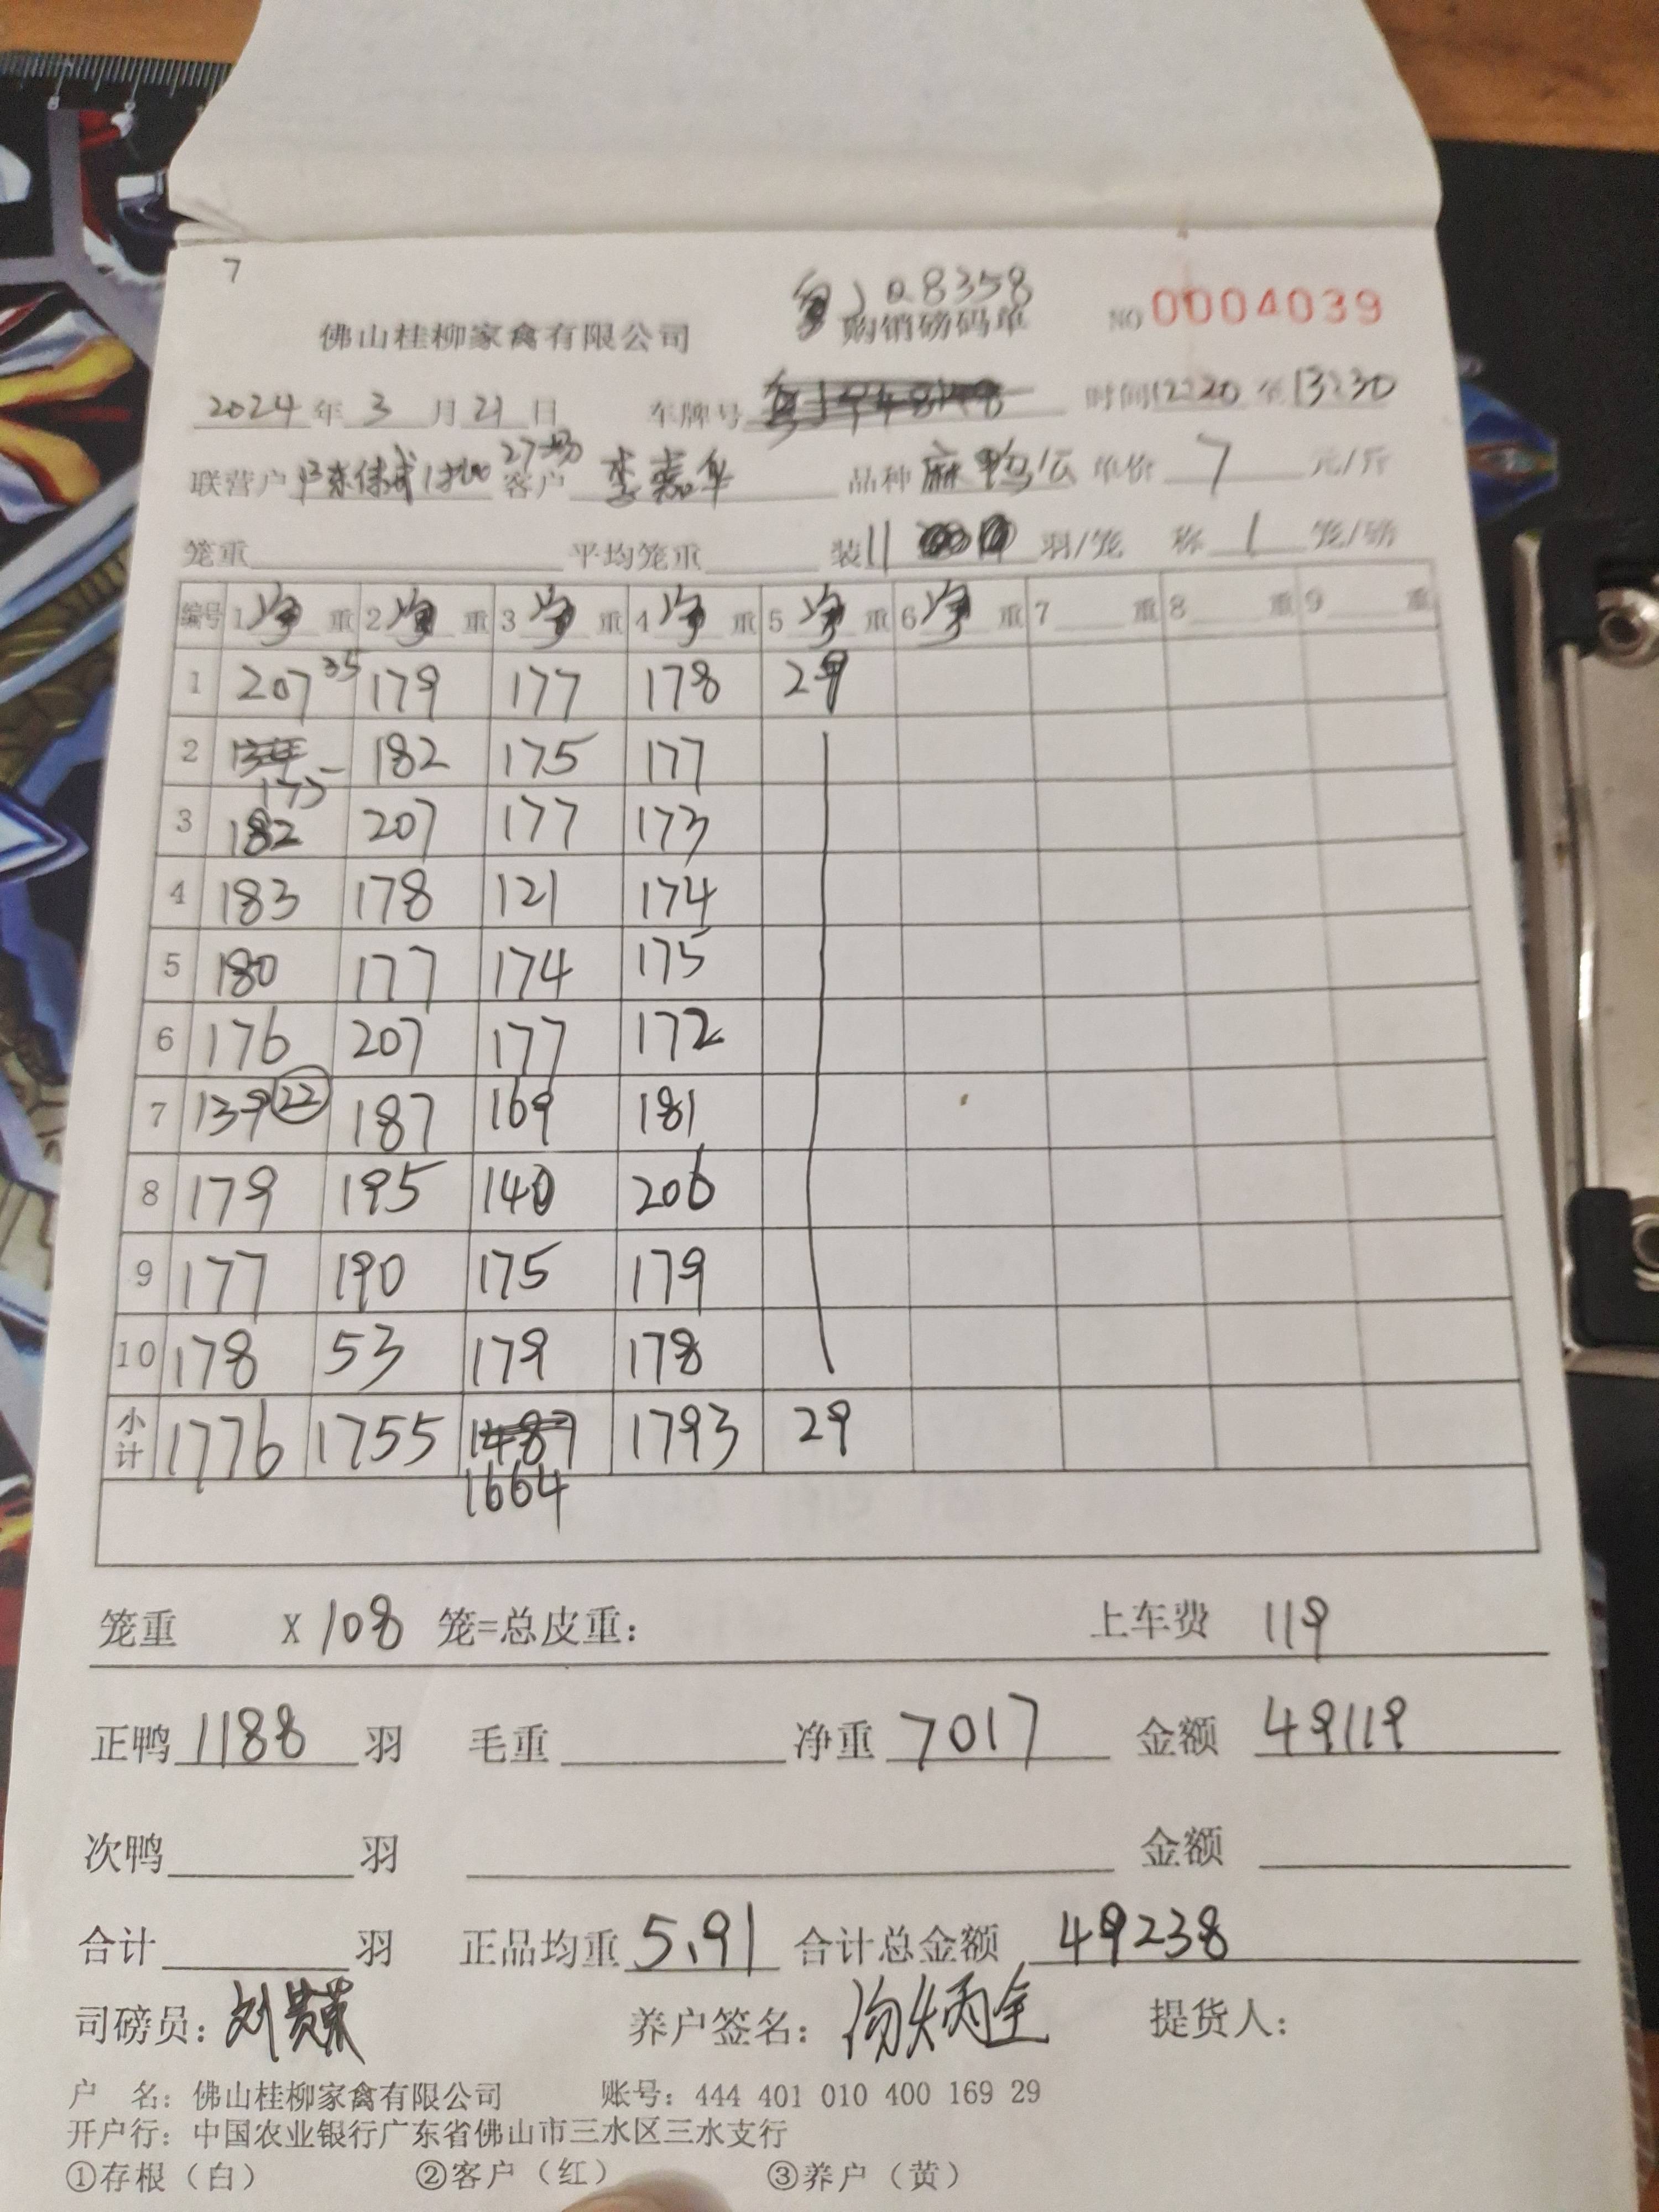 7
粤J Q8358
佛山桂柳家禽有限公司 购销磅码单 NO 0004039
2024 年 3 月 21 日 车牌号 时间 12:20 至 13:30
27场
联营户 客户 李嘉华 品种 麻鸭公 单价 7 元/斤
笼重 平均笼重 装 11 羽/笼 称 1 笼/磅
编号 1 净 重 2 净 重 3 净 重 4 净 重 5 净 重 6 净 重 7 重 8 重 9 重
1 207 35 179 177 178 29
2 175 182 175 177
3 182 207 177 173
4 183 178 121 174
5 180 177 174 175
6 176 207 177 172
7 139 22 187 169 181
8 179 195 140 206
9 177 190 175 179
10 178 53 179 178
小计 1776 1755 1487 1793 29
1664
笼重 X 108 笼=总皮重： 上车费 119
正鸭 1188 羽 毛重 净重 7017 金额 49119
次鸭 羽 金额
合计 羽 正品均重 5.91 合计总金额 49238
司磅员： 养户签名： 提货人：
户 名：佛山桂柳家禽有限公司 账号：444 401 010 400 169 29
开户行：中国农业银行广东省佛山市三水区三水支行
①存根（白） ②客户（红） ③养户（黄）